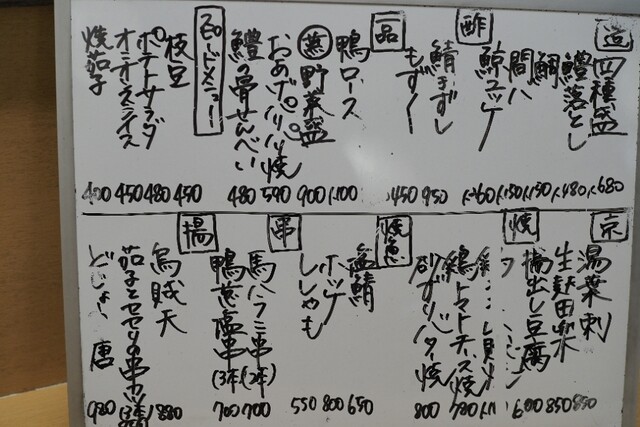 造
四種盛 1,680
鱧落とし 1,480
鯛 1,130
間八 1,130
鯨ユッケ 1,260
酢
鯖きずし 950
もずく 450
一品
鴨ロース 1,100
蒸野菜盛 900
おあげパリパリ焼 590
鱧の骨せんべい 480
スピードメニュー
枝豆 450
ポテトサラダ 480
オニオンスライス 450
焼茄子 400
京
湯葉刺 850
生麩田楽 850
揚出し豆腐 600
焼
鶏トマトチーズ焼 780
砂ずりバター焼 800
焼魚
塩鯖 650
ホッケ 800
ししゃも 550
串
馬ハラミ串(2本) 700
鴨葱塩串(3本) 700
揚
烏賊天 880
茄子とセセリの串カツ(3本)
どじょう唐 980